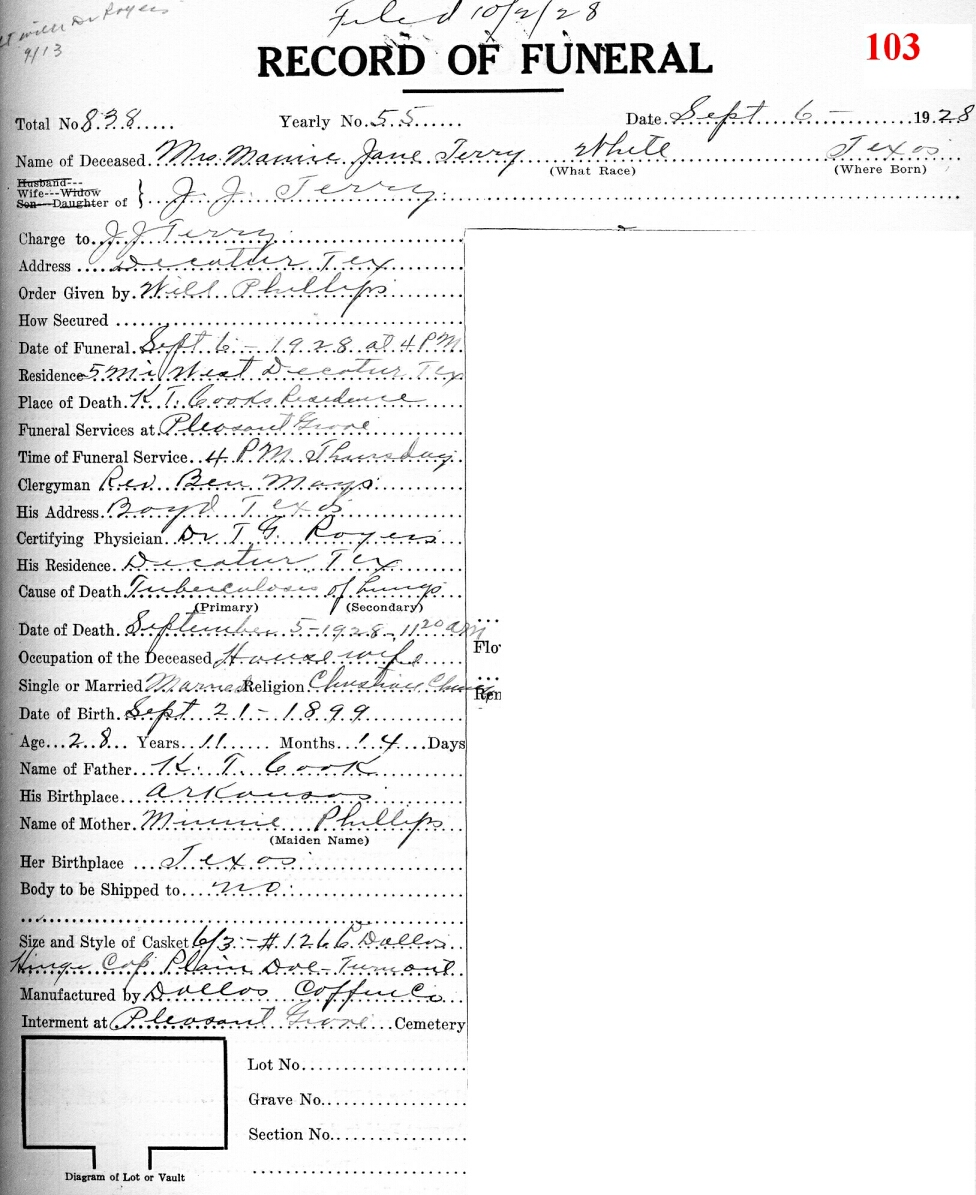 Filed 10/2/28
will Dr Rogers
9/13
RECORD OF FUNERAL
103
Total No. 838 Yearly No. 55 Date Sept 6 - 1928
Name of Deceased Mrs. Jane Terry White Texas
(What Race) (Where Born)
Husband---
Wife---Widow
Son---Daughter of } J. J. Terry
Charge to J J Terry
Address Decatur Tex
Order Given by Will Phillips
How Secured
Date of Funeral Sept 6 - 1928 at 4 PM
Residence 5 Mi West Decatur Tex
Place of Death K. T. Cooks Residence
Funeral Services at Pleasant Grove
Time of Funeral Service 4 P.M. Thursday
Clergyman Rev. Ben Mays
His Address Boyd Texas
Certifying Physician Dr. T. G. Rogers
His Residence Decatur Tex
Cause of Death Tuberculosis of Lungs
(Primary) (Secondary)
Date of Death September 5 - 1928 - 11 20 am
Flo
Occupation of the Deceased Housewife
Single or Married Married Religion Christian Church
Rem
Date of Birth Sept 21 - 1899
Age 28 Years 11 Months 14 Days
Name of Father K. T. Cook
His Birthplace Arkansas
Name of Mother Minnie Phillips
(Maiden Name)
Her Birthplace Texas
Body to be Shipped to no
Size and Style of Casket 6/3 - # 126 Dallas
Hinge Cap Plain
Manufactured by Dallas Coffin Co
Interment at Pleasant Grove Cemetery
Lot No.
Grave No.
Section No.
Diagram of Lot or Vault